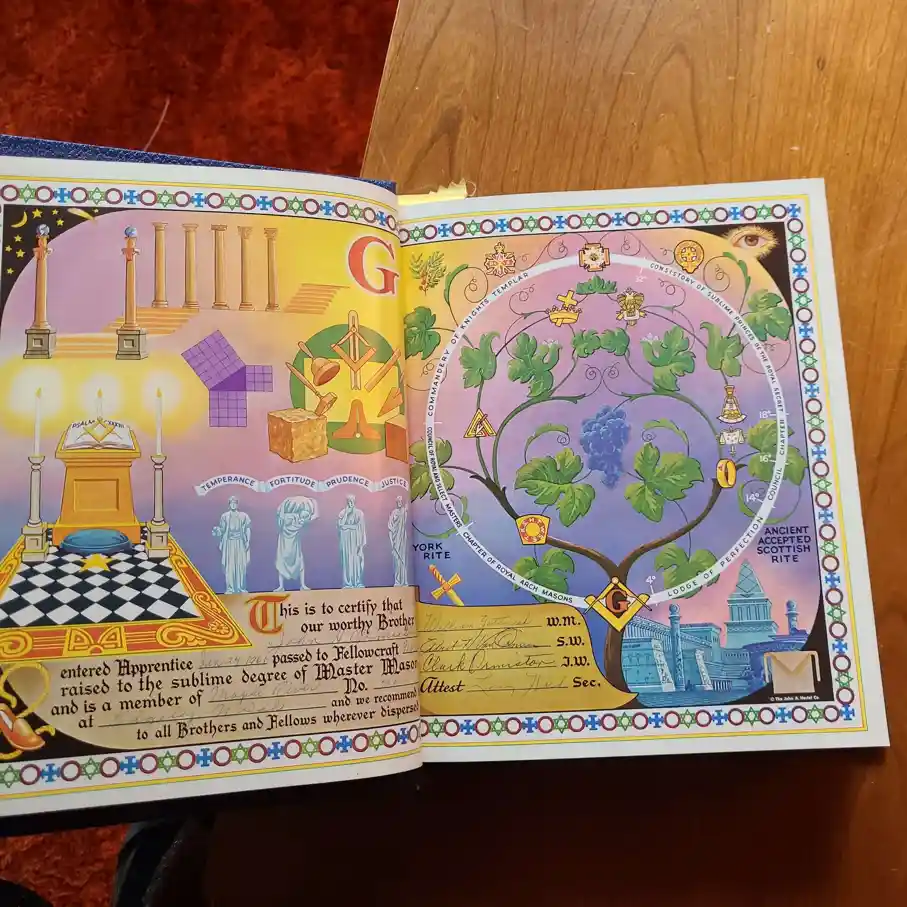 G
PSALM CXXXIII
TEMPERANCE FORTITUDE PRUDENCE JUSTICE
This is to certify that
our worthy Brother
entered Apprentice passed to Fellowcraft
raised to the sublime degree of Master Mason
and is a member of No.
at and we recommend
to all Brothers and Fellows wherever dispersed
COMMANDERY OF KNIGHTS TEMPLAR
COUNCIL OF ROYAL AND SELECT MASTERS
CHAPTER OF ROYAL ARCH MASONS
YORK
RITE
32°
CONSISTORY OF SUBLIME PRINCES OF THE ROYAL SECRET
18°
CHAPTER
16°
COUNCIL
14°
LODGE OF PERFECTION
4°
ANCIENT
ACCEPTED
SCOTTISH
RITE
G
W.M.
S.W.
Clark Ormiston J.W.
Attest Sec.
© The John A. Hertel Co.